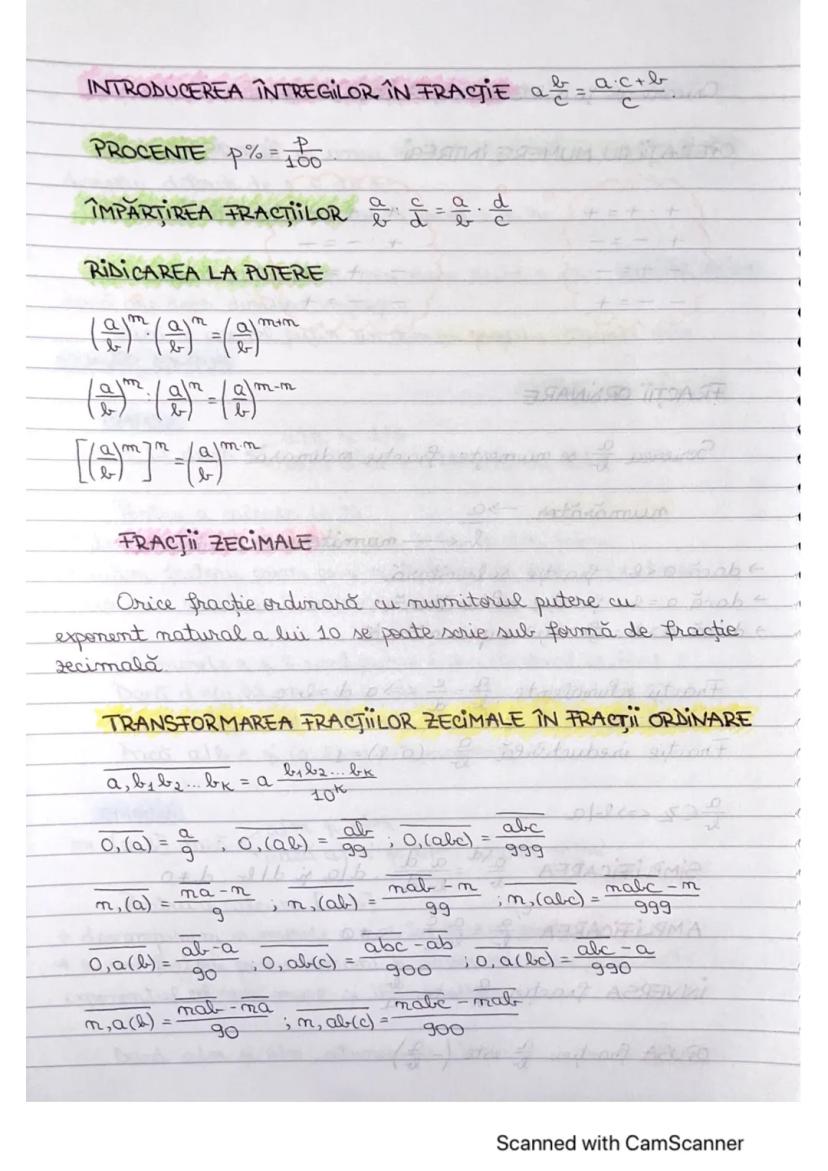 INTRODUCEREA ÎNTREGILOR ÎN FRACȚIE a b/c = (a·c+b)/c
PROCENTE p% = p/100
ÎMPĂRȚIREA FRACȚIILOR a/b : c/d = a/b · d/c
RIDICAREA LA PUTERE
(a/b)^m · (a/b)^n = (a/b)^(m+n)
(a/b)^m : (a/b)^n = (a/b)^(m-n)
[(a/b)^m]^n = (a/b)^(m·n)
FRACȚII ZECIMALE
Orice fracție ordinară cu numitorul putere cu
exponent natural a lui 10 se poate scrie sub formă de fracție
zecimală
TRANSFORMAREA FRACȚIILOR ZECIMALE ÎN FRACȚII ORDINARE
a,b₁b₂...bₖ = a b₁b₂...bₖ/10^k
0,(a) = a/9 ; 0,(ab) = ab/99 ; 0,(abc) = abc/999
n,(a) = (na-n)/9 ; n,(ab) = (nab-n)/99 ; n,(abc) = (nabc-n)/999
0,a(b) = (ab-a)/90 ; 0,ab(c) = (abc-ab)/900 ; 0,a(bc) = (abc-a)/990
n,a(b) = (nab-na)/90 ; n,ab(c) = (nabc-nab)/900
Scanned with CamScanner